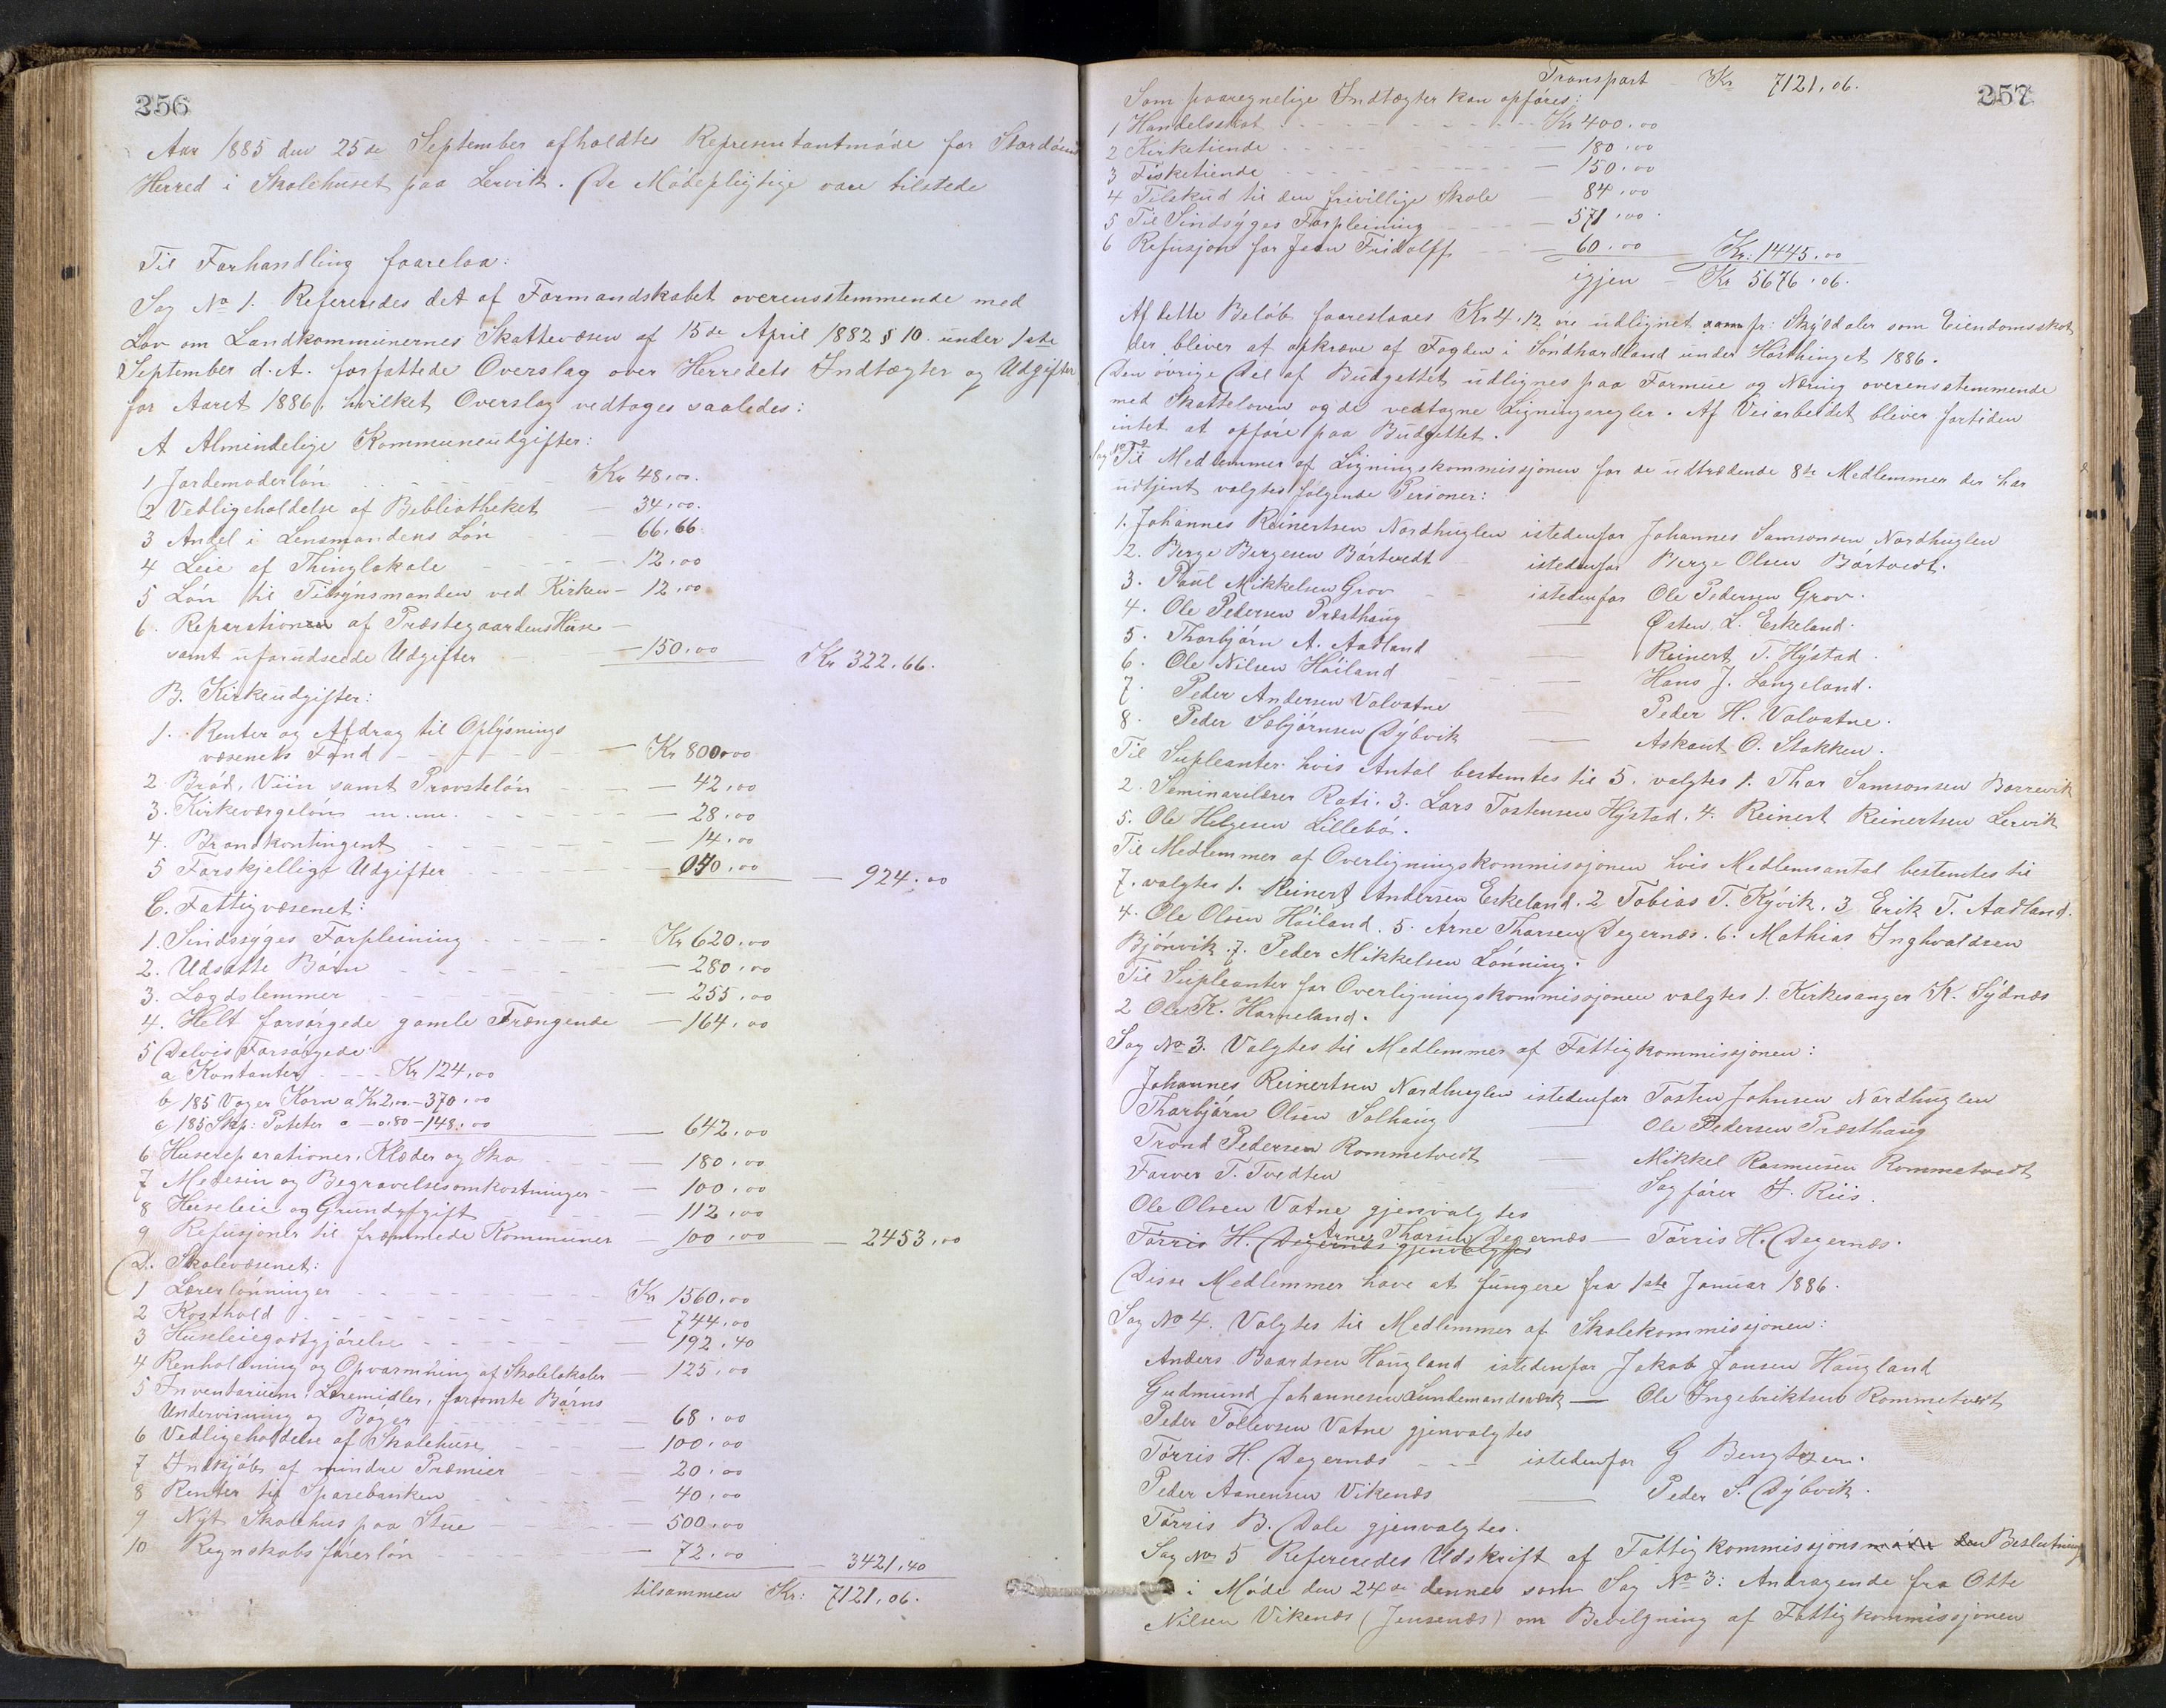 256
Aar 1885 den 25de September afholdtes Representantmøde for Stordøens
Herred i Skolehuset paa Lervik. De Mødepligtige vare tilstede
Til Forhandling foorelaa:
Sag No 1. Refereredes det af Formandskabet overensstemmende med
Lov om Landkommunernes Skattevæsen af 15de April 1882 § 10 under 1ste
September d.A. forfattede Overslag over Herredets Indtægter og Udgifter
for Aaret 1886, hvilket Overslag vedtoges saaledes:
A Almindelige Kommuneudgifter:
1 Jordemoderløn - - - Kr 48,00.
2 Vedligeholdelse af Bibliotheket — 34,00.
3 Andel i Lensmandens Løn — 66,66
4 Leie af Thinglokale — 12,00
5 Løn til Tilsynsmanden ved Kirken — 12,00
6. Reparationen af Præstegaardens Huse —
samt uforudseede Udgifter — 150,00 Kr 322,66.
B. Kirkeudgifter:
1. Renter og Afdrag til Oplysnings
væsenets Fond - - - Kr 800,00
2. Brød, Viin samt Provsteløn — 42,00
3. Kirkeværgeløn m.m. — 28,00
4. Brandkontingent — 14,00
5 Forskjellige Udgifter — 040,00 — 924,00
C. Fattigvæsenet:
1. Sindssyges Forpleining - - - Kr 620,00
2. Udsatte Børn — 280,00
3. Lægdslemmer — 255,00
4. Helt forsørgede gamle Trængende — 164,00
5 Delvis Forsørgede:
a Kontanter - - - Kr 124,00
b 185 Voger Korn a Kr 2,00 — 370,00
c 185 Skp: Poteter a — 0.80 — 148,00 — 642,00
6 Husereparationer, Klæder og Sko — 180,00
7 Medesin og Begravelsesomkostninger — 100,00
8 Huseleie og Grundafgift — 112,00
9 Refusjoner til fremmede Kommuner — 100,00 — 2453,00
D. Skolevæsenet:
1 Lærerlønninger - - - Kr 1560,00
2 Kosthold — 744,00
3 Huseleiegodtgjørelse — 192,40
4 Renholdning og Opvarmning af Skolelokaler — 125,00
5 Inventarium, Læremidler, forsømte Børns
Undervisning og Bøger — 68,00
6 Vedligeholdelse af Skolehuse — 100,00
7 Indkjøb af mindre Præmier — 20,00
8 Renter til Sparebanken — 40,00
9 Nyt Skolehus paa Stue — 500,00
10 Regnskabsførerløn — 72,00 — 3421,40
tilsammen Kr: 7121,06.
257
Transport Kr 7121,06.
Som paaregnelige Indtægter kan opføres:
1 Handelsskat - - - Kr 400,00
2 Kirketiende — 180,00
3 Fisketiende — 150,00
4 Tilskud til den frivillige Skole — 84,00
5 Til Sindsyges Forpleining — 571,00
6 Refusjon for Jean Fridolff — 60,00 Kr: 1445,00
igjen — Kr 5676,06.
Af dette Beløb foareslaaes Kr 4.12 øre udlignet pr: Skyldaler som Eiendomsskat
der bliver at opkræve af Fogden i Søndhordland under Høstthinget 1886.
Den øvrige Del af Budgettet udlignes paa Formue og Næring overensstemmende
med Skatteloven og de vedtagne Ligningsregler. Af Veiarbeidet bliver fortiden
intet at opføre paa Budgettet.
Sag No 2
Til Medlemmer af Ligningskommissjonen for de udtrædende 8te Medlemmer der har
udtjent valgtes følgende Personer:
1. Johannes Reinertsen Nordhuglen istedenfor Johannes Samsonsen Nordhuglen
2. Berge Bergesen Børtvedt istedenfor Berge Olsen Børtvedt.
3. Poul Mikkelsen Grov istedenfor Ole Pedersen Grov.
4. Ole Pedersen Præsthaug — Østen L. Eskeland.
5. Thorbjørn A. Aadland — Reinert T. Hystad.
6. Ole Nilsen Høiland — Hans J. Langeland.
7. Peder Andersen Valvatne — Peder H. Valvatne.
8. Peder Sæbjørnsen Dybvik — Askaut O. Stokken.
Til Supleanter hvis Antal bestemtes til 5. valgtes 1. Thor Samsonsen Borrevik
2. Seminarelærer Roti. 3. Lars Tostensen Hystad. 4. Reinert Reinertsen Lervik
5. Ole Helgesen Lillebø.
Til Medlemmer af Overligningskommissjonen hvis Medlemsantal bestemtes til
7. valgtes 1. Reinert Andersen Eskeland. 2 Tobias T. Kyvik. 3. Erik T. Aadland.
4. Ole Olsen Høiland. 5. Arne Thorsen Degernæs. 6. Mathias Inghvaldsen
Bjønvik. 7. Peder Mikkelsen Lønning.
Til Supleanter for Overligningskommissjonen valgtes 1. Kirkesanger K. Sydnæs
2 Ole K. Horneland.
Sag No 3. Valgtes til Medlemmer af Fattigkommissjonen:
Johannes Reinertsen Nordhuglen istedenfor Tosten Johnsen Nordhuglen
Thorbjørn Olsen Solhaug — Ole Pedersen Præsthaug
Trond Pedersen Rommetvedt — Mikkel Rasmusen Rommetvedt
Farver T. Tvedten — Sagfører J. Riis.
Ole Olsen Vatne gjenvalgtes
Tørris H. Degernæs gjenvalgtes Arne Thorsen Degernæs — Tørris H. Degernæs.
Disse Medlemmer have at fungere fra 1ste Januar 1886.
Sag No 4. Valgtes til Medlemmer af Skolekommissjonen:
Anders Baardsen Haugland istedenfor Jakob Jansen Haugland
Gudmund Johannesen Lundemandsværk — Ole Ingebriktsen Rommetvedt
Peder Tollevsen Vatne gjenvalgtes
Tørris H. Degernæs - - - istedenfor G Bengtzen.
Peder Aanensen Vikenæs — Peder S. Dybvik.
Tørris B. Dale gjenvalgtes.
Sag No 5 Refereredes Udskrift af Fattigkommissjons møde den Beslutning
i Møde den 24de dennes som Sag No 3: Andragende fra Otte
Nilsen Vikenæs (Jensenæs) om Bevilgning af Fattigkommissjonen